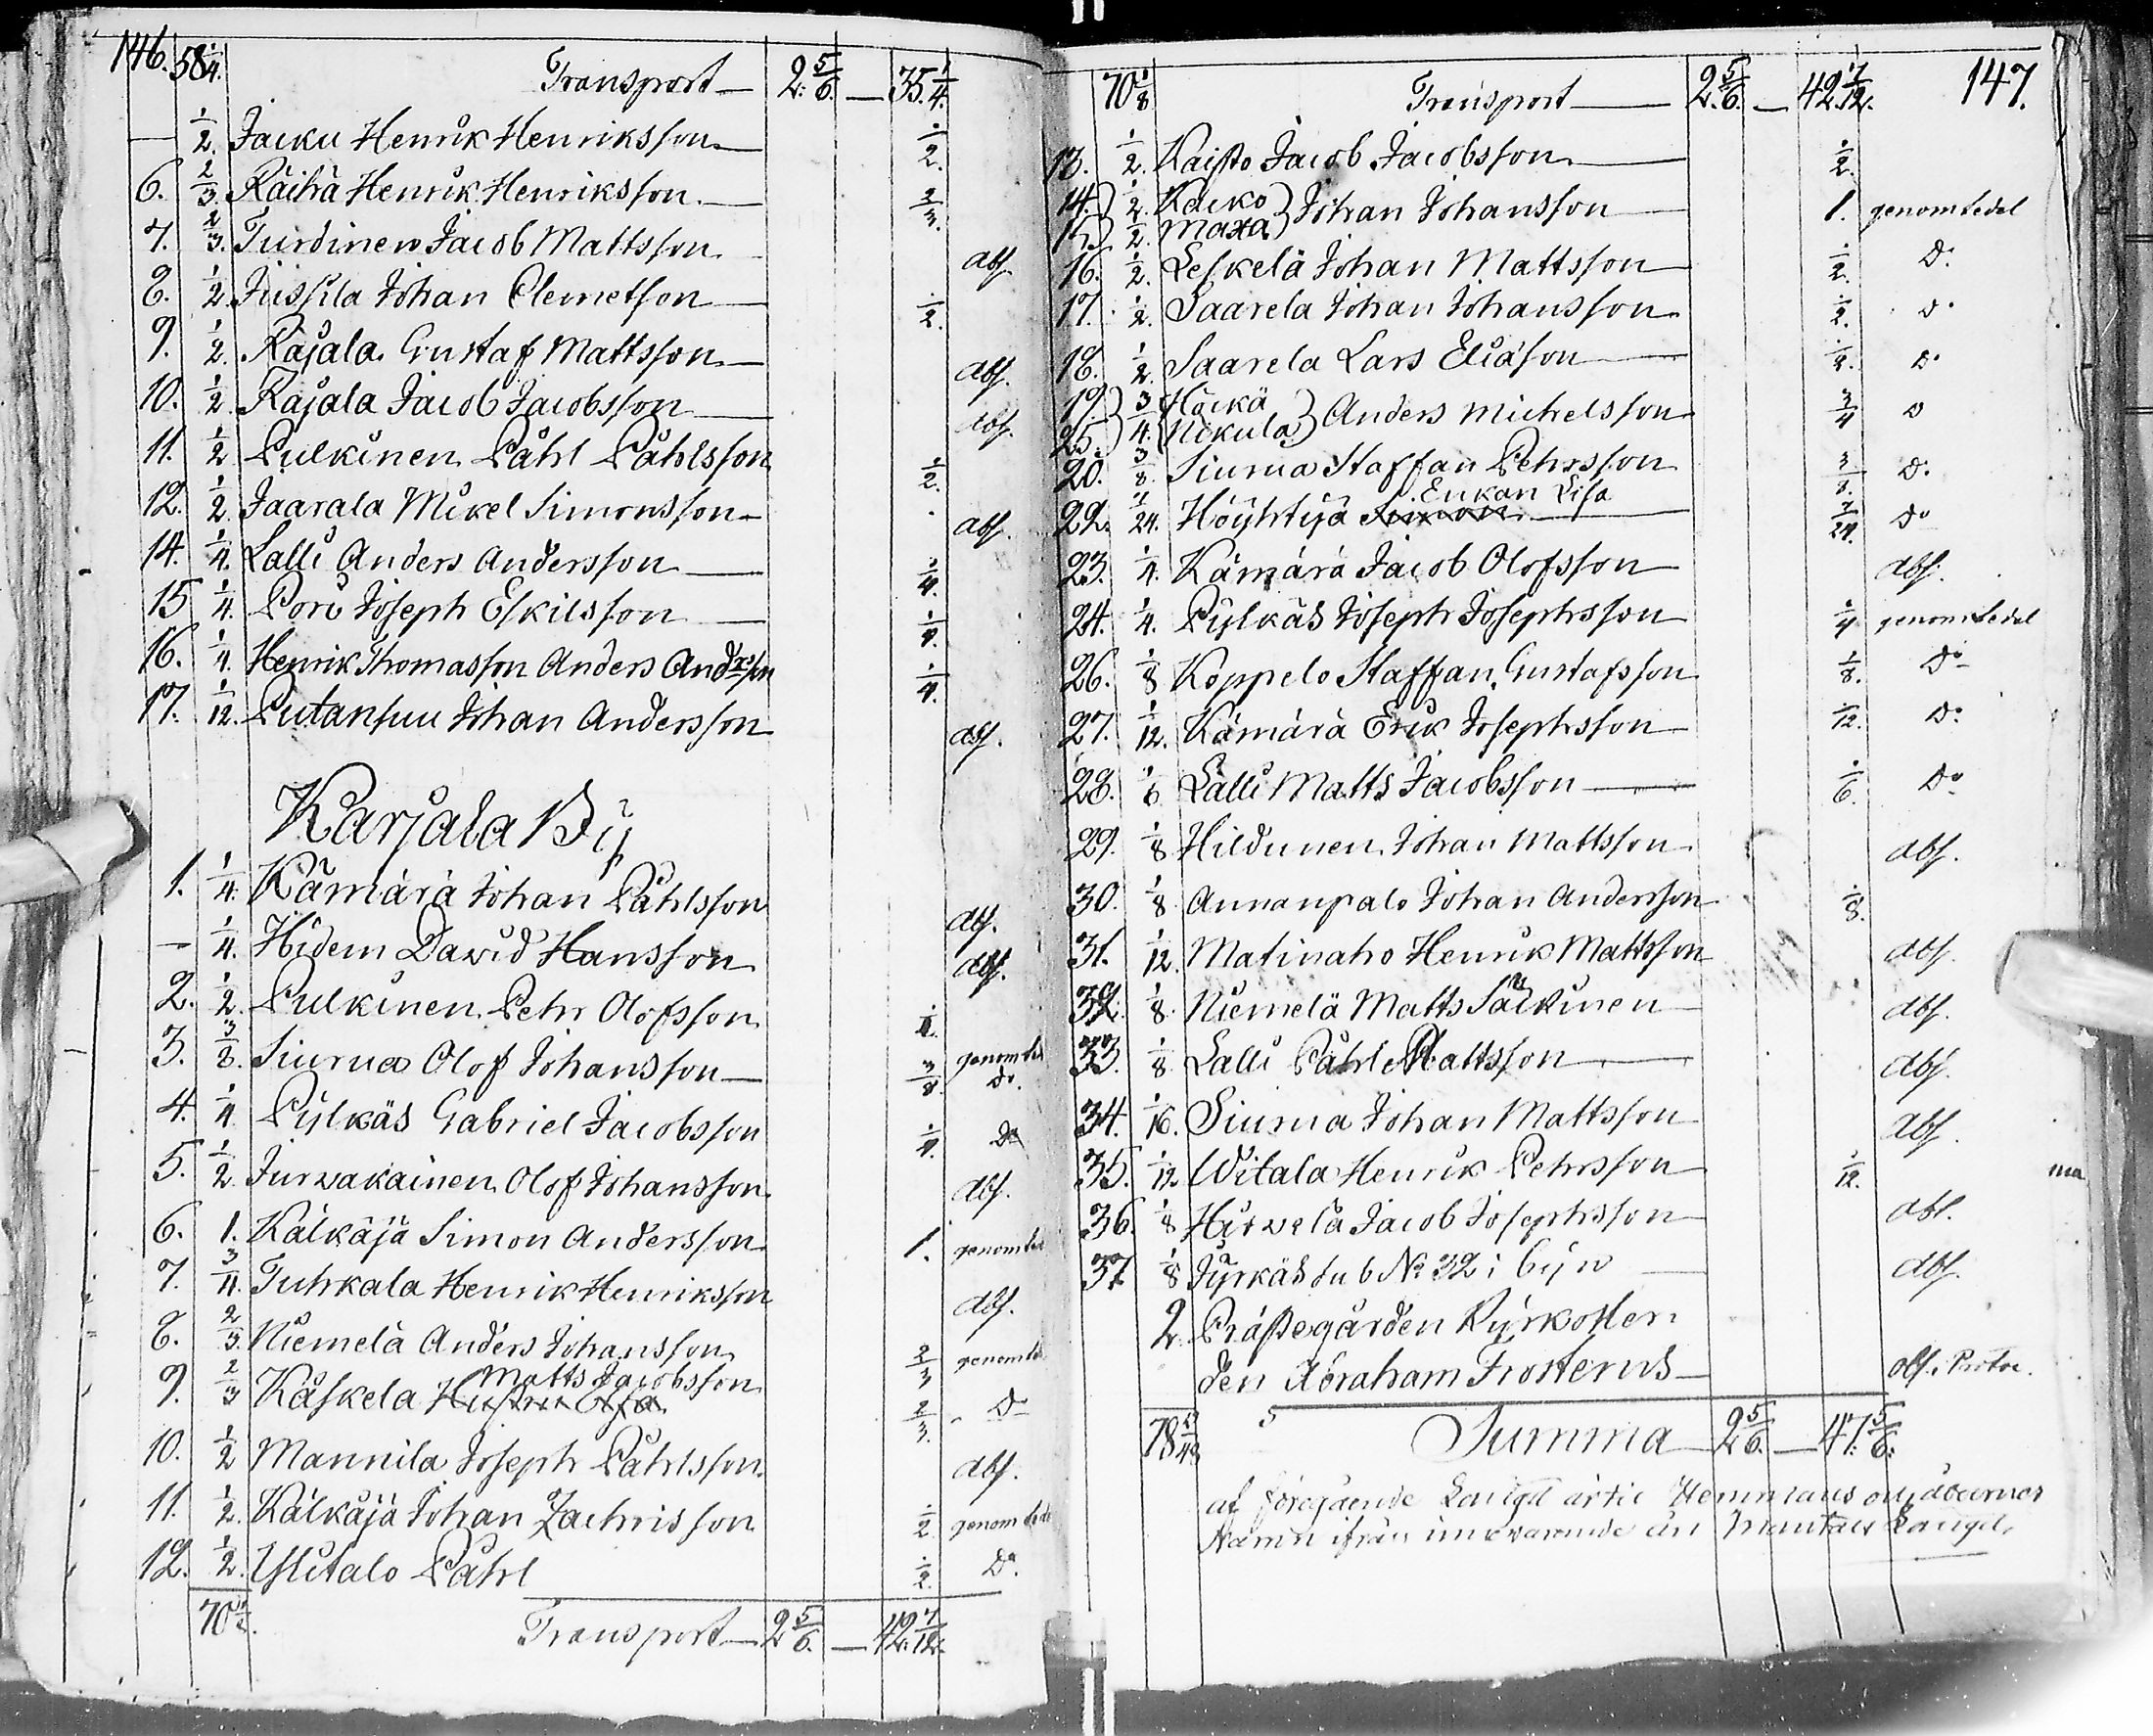 146. 58 1/4. Transport — 2. 5/6. — 35. 1/4.
— 1/2. Jacku Henrik Henriksson — 1/2.
6. 2/3. Räihä Henrik Henriksson. — 2/3.
7. 2/3. Turdinen Jacob Mattsson abs.
8. 1/2. Jussila Johan Clemetson — 1/2.
9. 1/2. Rajala Gustaf Mattsson — abs.
10. 1/2. Rajala Jacob Jacobsson — abs.
11. 1/2 Pulkinen Påhl Påhlsson 1/2.
12. 1/2 Jaarala Mikel Simonsson — abs.
14. 1/4. Lalli Anders Andersson — 1/4.
15 1/4. Pori Joseph Eskilsson — 1/4.
16. 1/4. Henrik Thomasson Anders Andrsson 1/4.
17. 1/12. Putansuu Johan Andersson abs.
Karjala By
1. 1/4. Kämärä Johan Påhlsson abs.
— 1/4. Hidem David Hansson abs.
2. 1/2. Pulkinen Pehr Olofsson 1/4. genomted
3. 3/8. Siurua Olof Johansson — 3/8. Do.
4. 1/4 Pylkäs Gabriel Jacobsson 1/4. Do
5. 1/2 Jurvakainen Olof Johansson abs.
6. 1. Kälkäjä Simon Andersson 1. genomted
7. 3/4. Tuhkala Henrik Henriksson abs.
8. 2/3. Niemelä Anders Johansson 2/3 genomted
Matts Jacobsson
9. 2/3 Käskela Hustru 2/3. Do
10. 1/2 Mannila Joseph Påhlsson abs.
11. 1/2. Kälkäjä Johan Zachrisson 1/2 genomted
12. 1/2. Ylitalo Påhl 1/2. Do.
70 Transport — 2 5/6. — 42. 7/12.
70 1/8 Transport — 2. 5/6. — 42. 7/12. 147.
13. 1/2. Kaisto Jacob Jacobsson — 1/2.
14. 1/2. Kaiko
15 1/2. Maxa Johan Johansson — 1. genomtedel
16. 1/2. Leskelä Johan Mattsson — 1/2. Do.
17. 1/2. Saarela Johan Johansson 1/2. Do
18. 1/2. Saarela Lars Eliäson — 1/2. Do
19. 3/4. Höckä
25. Nikula Anders Michelsson 3/4 Do
20. 3/8. Siurua Staffan Pehrsson 3/8. Do.
Enkan Lisa
22. 7/24. Höyhtyä Simon — 7/24. Do
23. 1/4. Kämärä Jacob Olofsson abs.
24. 1/4. Pylkäs Joseph Josephsson 1/4 genomtedel
26. 1/8 Koppelo Staffan Gustafsson 1/8. Do
27. 1/12. Kämärä Erik Josephsson 1/12. Do.
28. 1/6. Lalli Matts Jacobsson — 1/6. Do
29. 1/8 Hildunen Johan Mattsson abs.
30. 1/8 Annanpalo Johan Andersson 1/8.
31. 1/12. Matinaho Henrik Mattsson abs.
32. 1/8. Niemelä Matts Salkinen abs.
33. 1/8 Lalli Påhl Mattsson — abs.
34. 1/16. Siurua Johan Mattsson abs.
35. 1/12. Witala Henrik Pehrsson 1/12.
36. 1/8 Hirvelä Jacob Josephsson abs.
37. 1/8 Jyrkäs sub No 32 i byn — abs.
2. Prästegården Kyrkoher
den Abraham Frosterus — abs. Pastor.
78 Summa — 2 5/6. — 47. 5/6.
af föregående Längd Hemmans
Namn ifrån Mantals Längd.